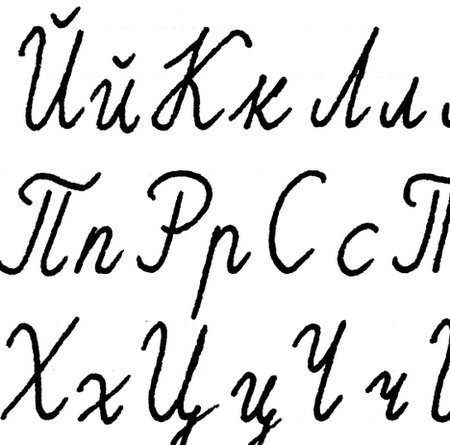 Йй Кк Лл
Пп Рр Сс Т
Хх Цц Чч